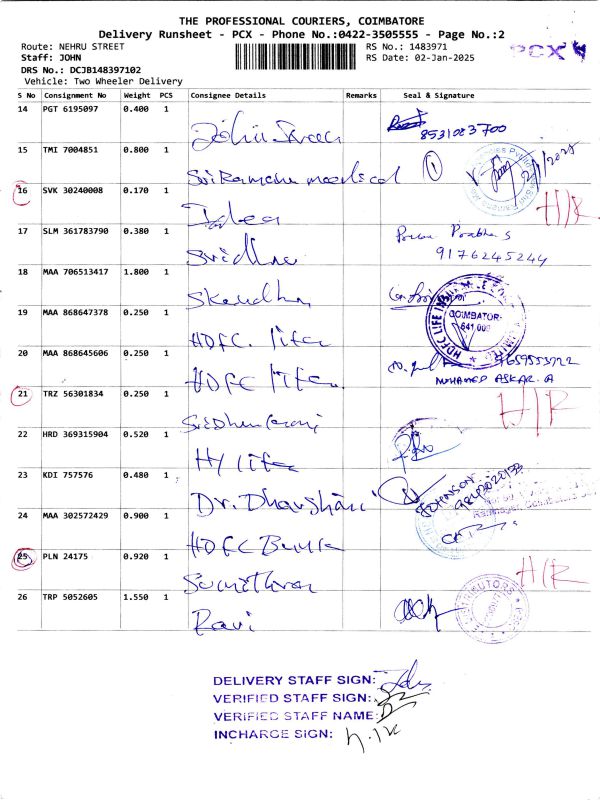 THE PROFESSIONAL COURIERS, COIMBATORE
Delivery Runsheet - PCX - Phone No.:0422-3505555 - Page No.:2
Route: NEHRU STREET RS No.: 1483971 PCX
Staff: JOHN RS Date: 02-Jan-2025
DRS No.: DCJB148397102
Vehicle: Two Wheeler Delivery
S No Consignment No Weight PCS Consignee Details Remarks Seal & Signature
14 PGT 6195097 0.400 1
8531083700
15 TMI 7004851 0.800 1 1
16 SVK 30240008 0.170 1 H/R
17 SLM 361783790 0.380 1 Sridhar
9176245244
18 MAA 706513417 1.800 1
HDFC LIFE COIMBATORE- 641 009
19 MAA 868647378 0.250 1 HDFC life
20 MAA 868645606 0.250 1 HDFC life 7659553922
MOHAMED ASKAR. A
21 TRZ 56301834 0.250 1 H/R
22 HRD 369315904 0.520 1 life
23 KDI 757576 0.480 1 Dr. Dharshani
JOHNSON
24 MAA 302572429 0.900 1 HDFC Bank
25 PLN 24175 0.920 1 H/R
26 TRP 5052605 1.550 1 Ravi
DELIVERY STAFF SIGN:
VERIFIED STAFF SIGN:
VERIFIED STAFF NAME:
INCHARGE SIGN: